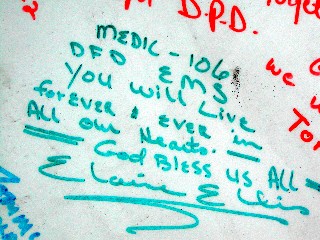 D.P.D.
MEDIC - 106
DFD EMS
You will Live
forever & ever in
All our Hearts.
God Bless us All
Elaine Ellis
we